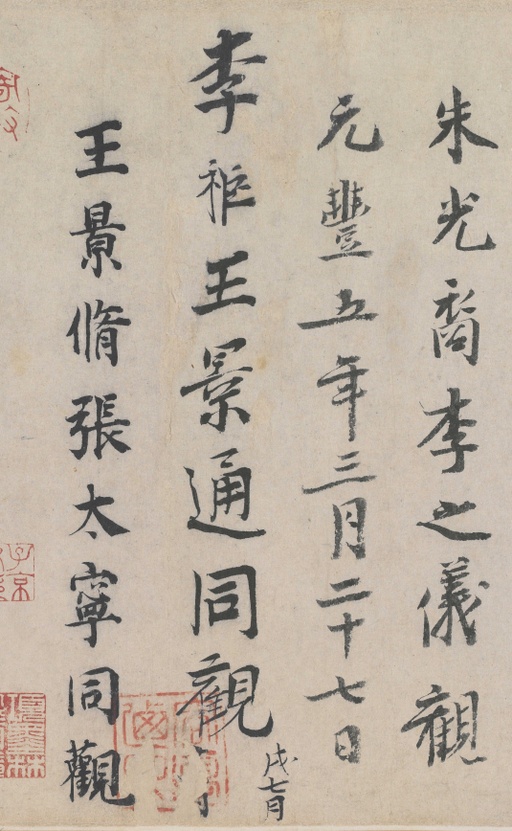 朱光裔李之儀觀
元豐五年三月二十七日
李秬王景通同觀
戌七月
王景脩張太寧同觀